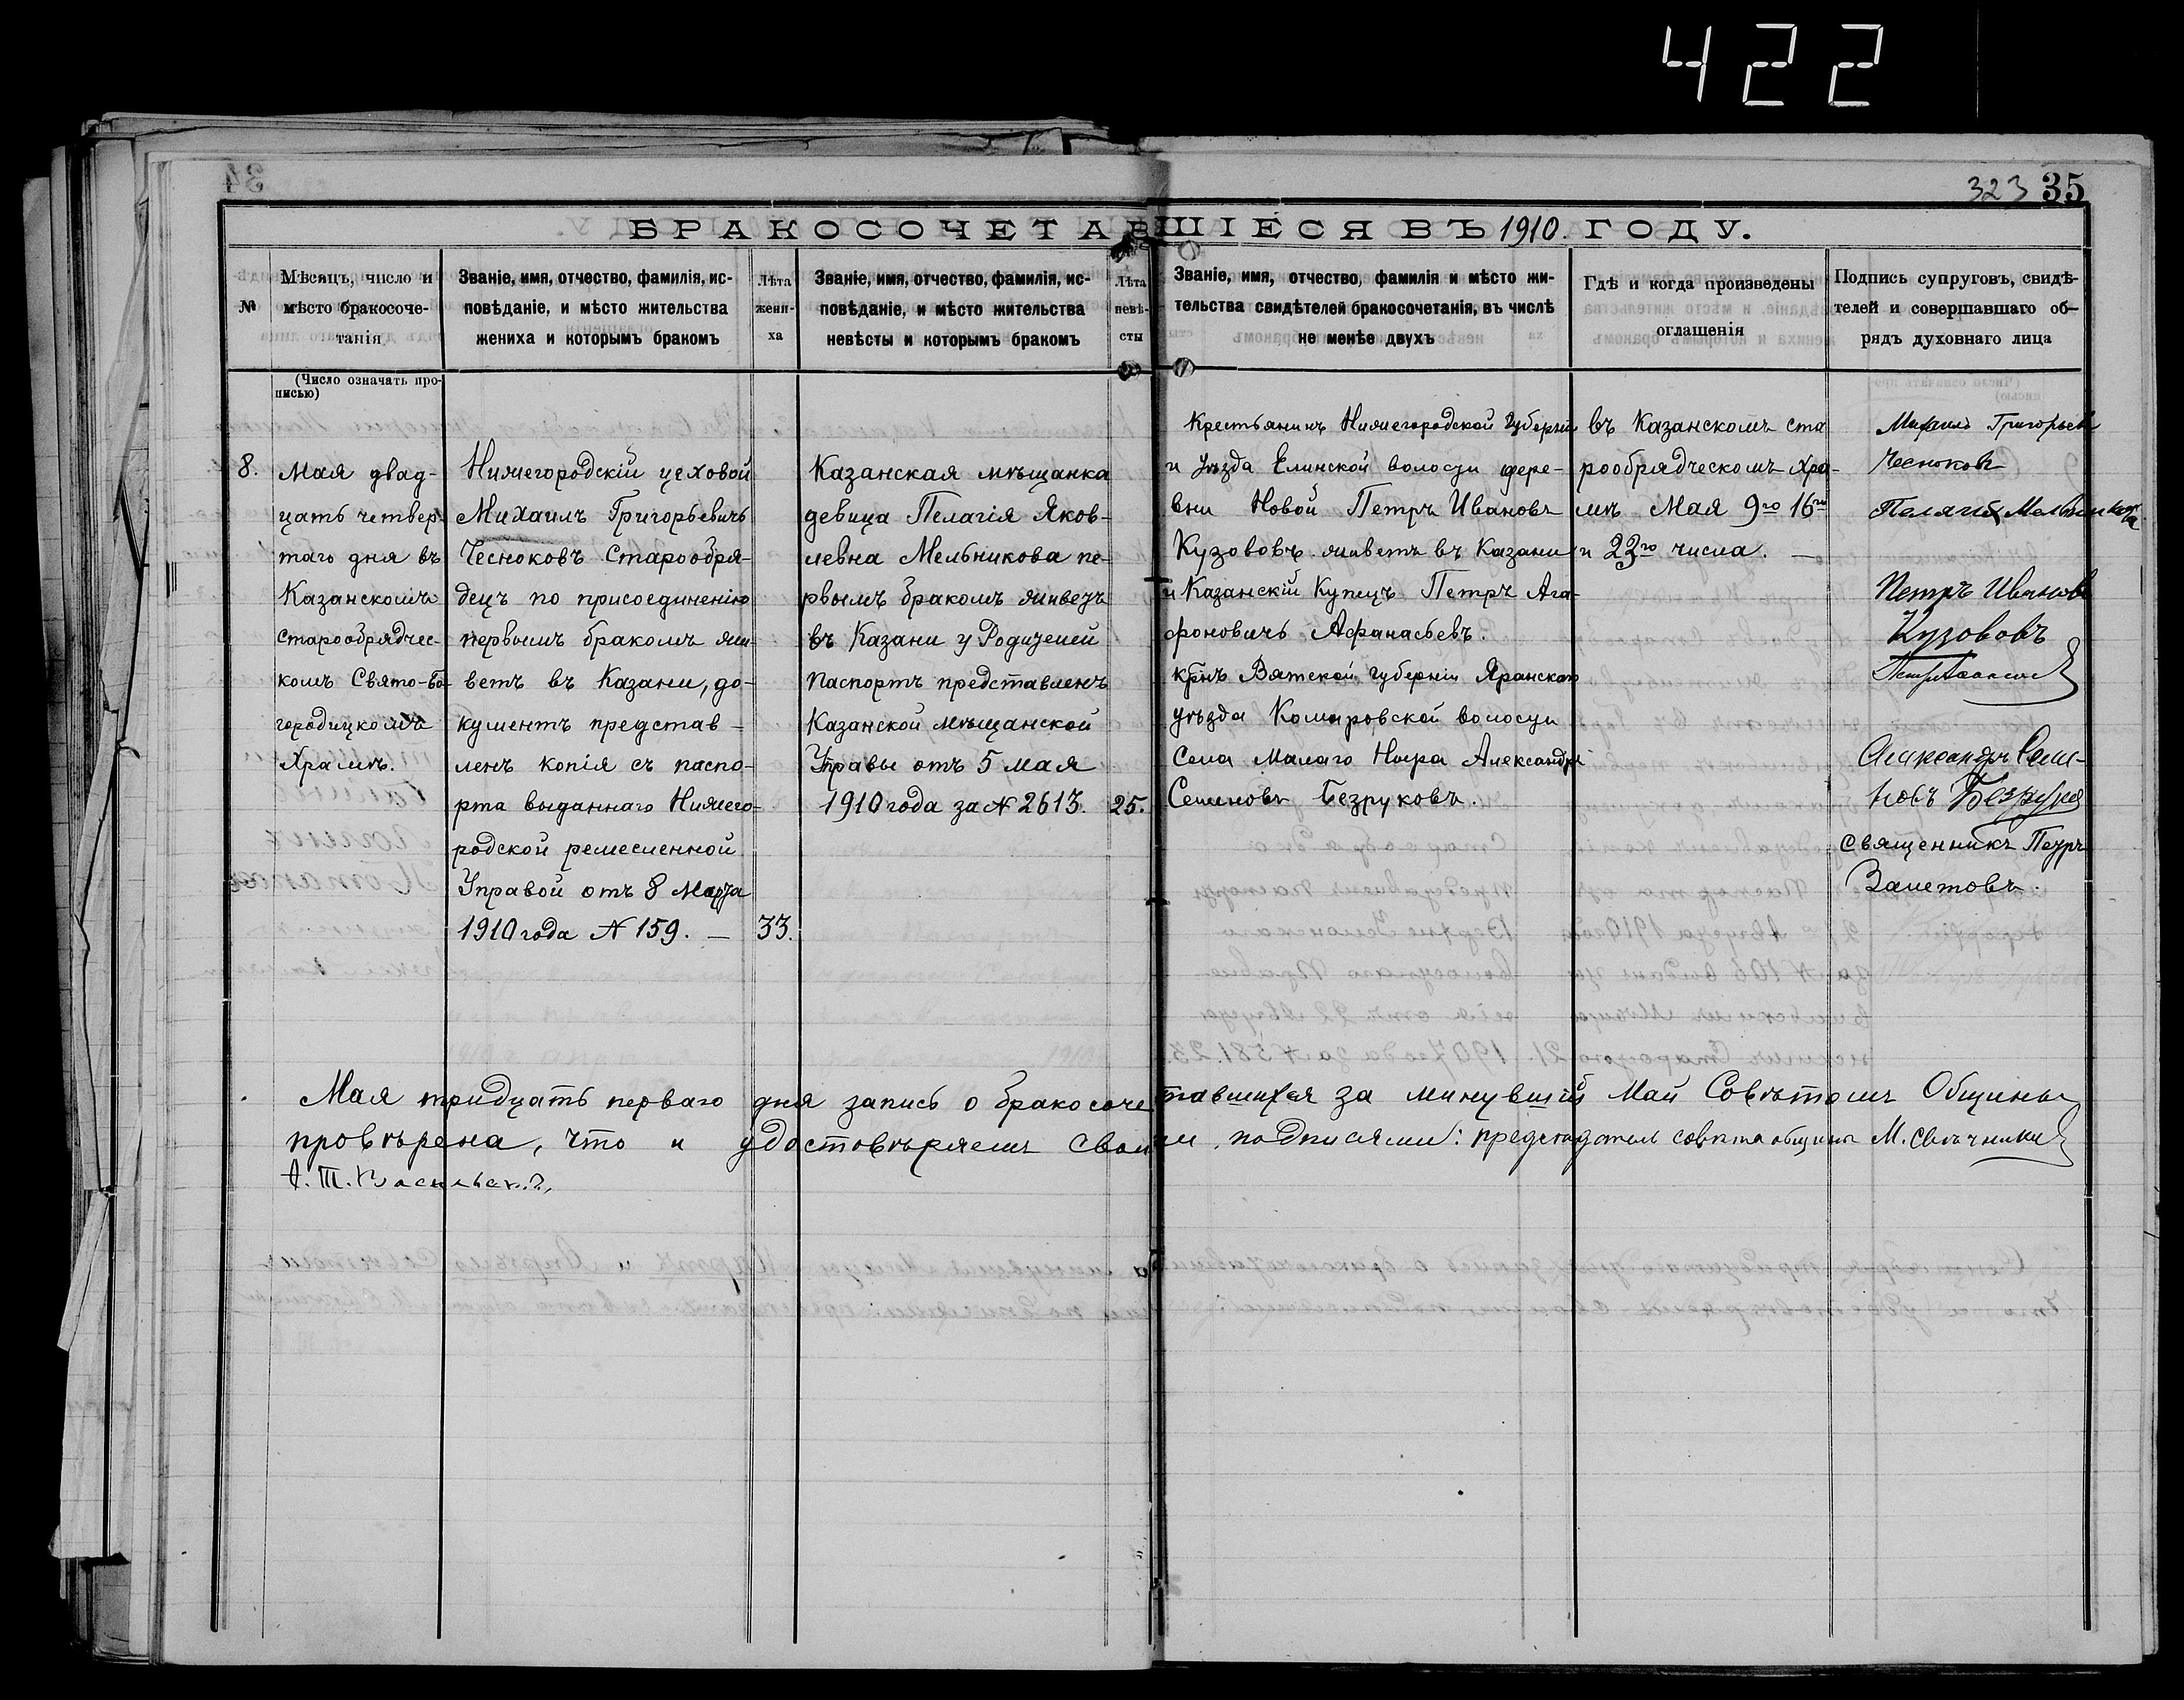 422
323 35
БРАКОСОЧЕТАВШІЕСЯ ВЪ 1910 ГОДУ.
№
Мѣсяцъ, число и
мѣсто бракосоче-
танія
Званіе, имя, отчество, фамилія, ис-
повѣданіе, и мѣсто жительства
жениха и которымъ бракомъ
Лѣта
жени-
ха
Званіе, имя, отчество, фамилія, ис-
повѣданіе, и мѣсто жительства
невѣсты и которымъ бракомъ
Лѣта
невѣ-
сты
Званіе, имя, отчество, фамилія и мѣсто жи-
тельства свидѣтелей бракосочетанія, въ числѣ
не менѣе двухъ
Гдѣ и когда произведены
оглашенія
Подпись супруговъ, свидѣ-
телей и совершавшаго об-
рядъ духовнаго лица
(Число означать про-
писью)
8.
Мая двад-
цать четвер-
таго дня въ
Казанскомъ
старообрядчес-
комъ Свято-Бо-
городицкомъ
Храмѣ.
Нижегородскій цеховой
Михаилъ Григорьевичъ
Чесноковъ Старообря-
децъ по присоединенію
первымъ бракомъ жи-
ветъ въ Казани, до-
кументъ представ-
ленъ копія съ паспо-
рта выданнаго Нижего-
родской ремесленной
Управой отъ 8 Марта
1910 года № 159. —
33.
Казанская мѣщанка
девица Пелагія Яков-
левна Мельникова пе-
рвымъ бракомъ живетъ
въ Казани у Родителей
Паспортъ представленъ
Казанской мѣщанской
Управы отъ 5 мая
1910 года за № 2613.
25.
Крестьянинъ Нижегородской Губерніи
и уѣзда Елинской волости дере-
вни Новой Петръ Ивановъ
Кузововъ живетъ въ Казани
и Казанскій Купецъ Петръ Ага-
фоновичъ Афанасьевъ.
крнъ Вятской губерніи Яранскаго
уѣзда Комаровской волости
Села Малаго Ноера Александръ
Семеновъ Безруковъ.
въ Казанскомъ ста
рообрядческомъ хра-
мѣ Мая 9го 16го
и 23го числа. —
Михаилъ Григорьевъ
Чесноковъ
Пелагія Мельникова
Петръ Ивановъ
Кузововъ
Александръ Семе-
новъ Безруковъ
Священникъ Петръ
Залетовъ.
Мая тридцать перваго дня запись о бракосочетавшихся за минувшій Май Совѣтомъ Общины
провѣрена, что и удостовѣряемъ своими подписями: председатель совѣта общины М. Свѣчников